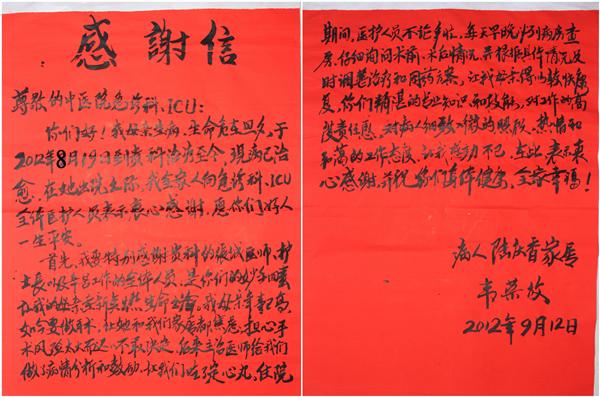 感謝信
尊敬的中医院急诊科、ICU:
你们好!我母亲生病,生命危在旦夕,于
2012年8月19日到贵科治疗至今,现病已治
愈,在她出院之际,我全家人向急诊科、ICU
全体医护人员表示衷心感谢,愿你们好人
一生平安。
首先,我要特别感谢贵科的张诚医师,护
士长以及年的工作的全体人员,是你们的妙手回春
让我的母亲重新焕然生命之籥。我母亲年事已高,
如今要做手术,让她和我们家属都焦虑、担心手
术风险太大而迟迟不敢决定,后来主治医师给我们
做了病情分析和鼓励,让我们吃了定心丸,住院
期间,医护人员不论多忙,每天早晚分到病房查
房,仔细询问术前、术后情况,并根据具体情况及
时调整治疗和用药方案,让我母亲得以较快康
复,你们精湛的专业知识和技能,对工作的高
度责任感,对病人细致入微的照顾,热情和
和蔼的工作态度,让我感动不已,在此表示衷
心感谢,并祝你们身体健康,全家幸福!
病人陆庆香家属
韦荣放
2012年9月12日